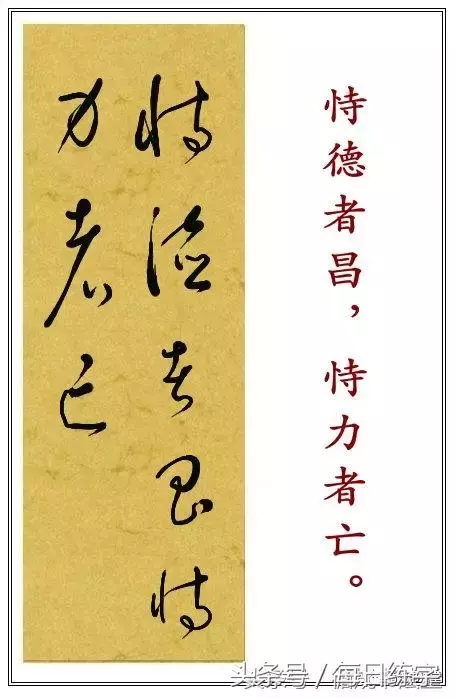 恃德者昌恃
力者亡
恃德者昌，恃力者亡。
头条号／每日练字